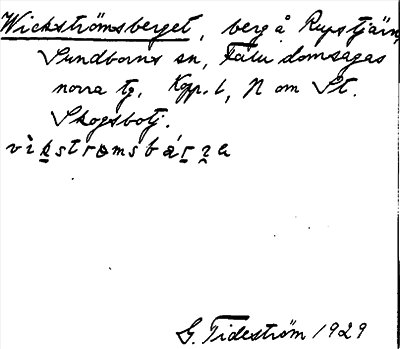 Wickströmsberget, berg å Rupstjärn,
Sundborns sn, Falu domsagas
norra tg. Kopp. l, N om St.
Skogsbotj.
G. Tideström 1929